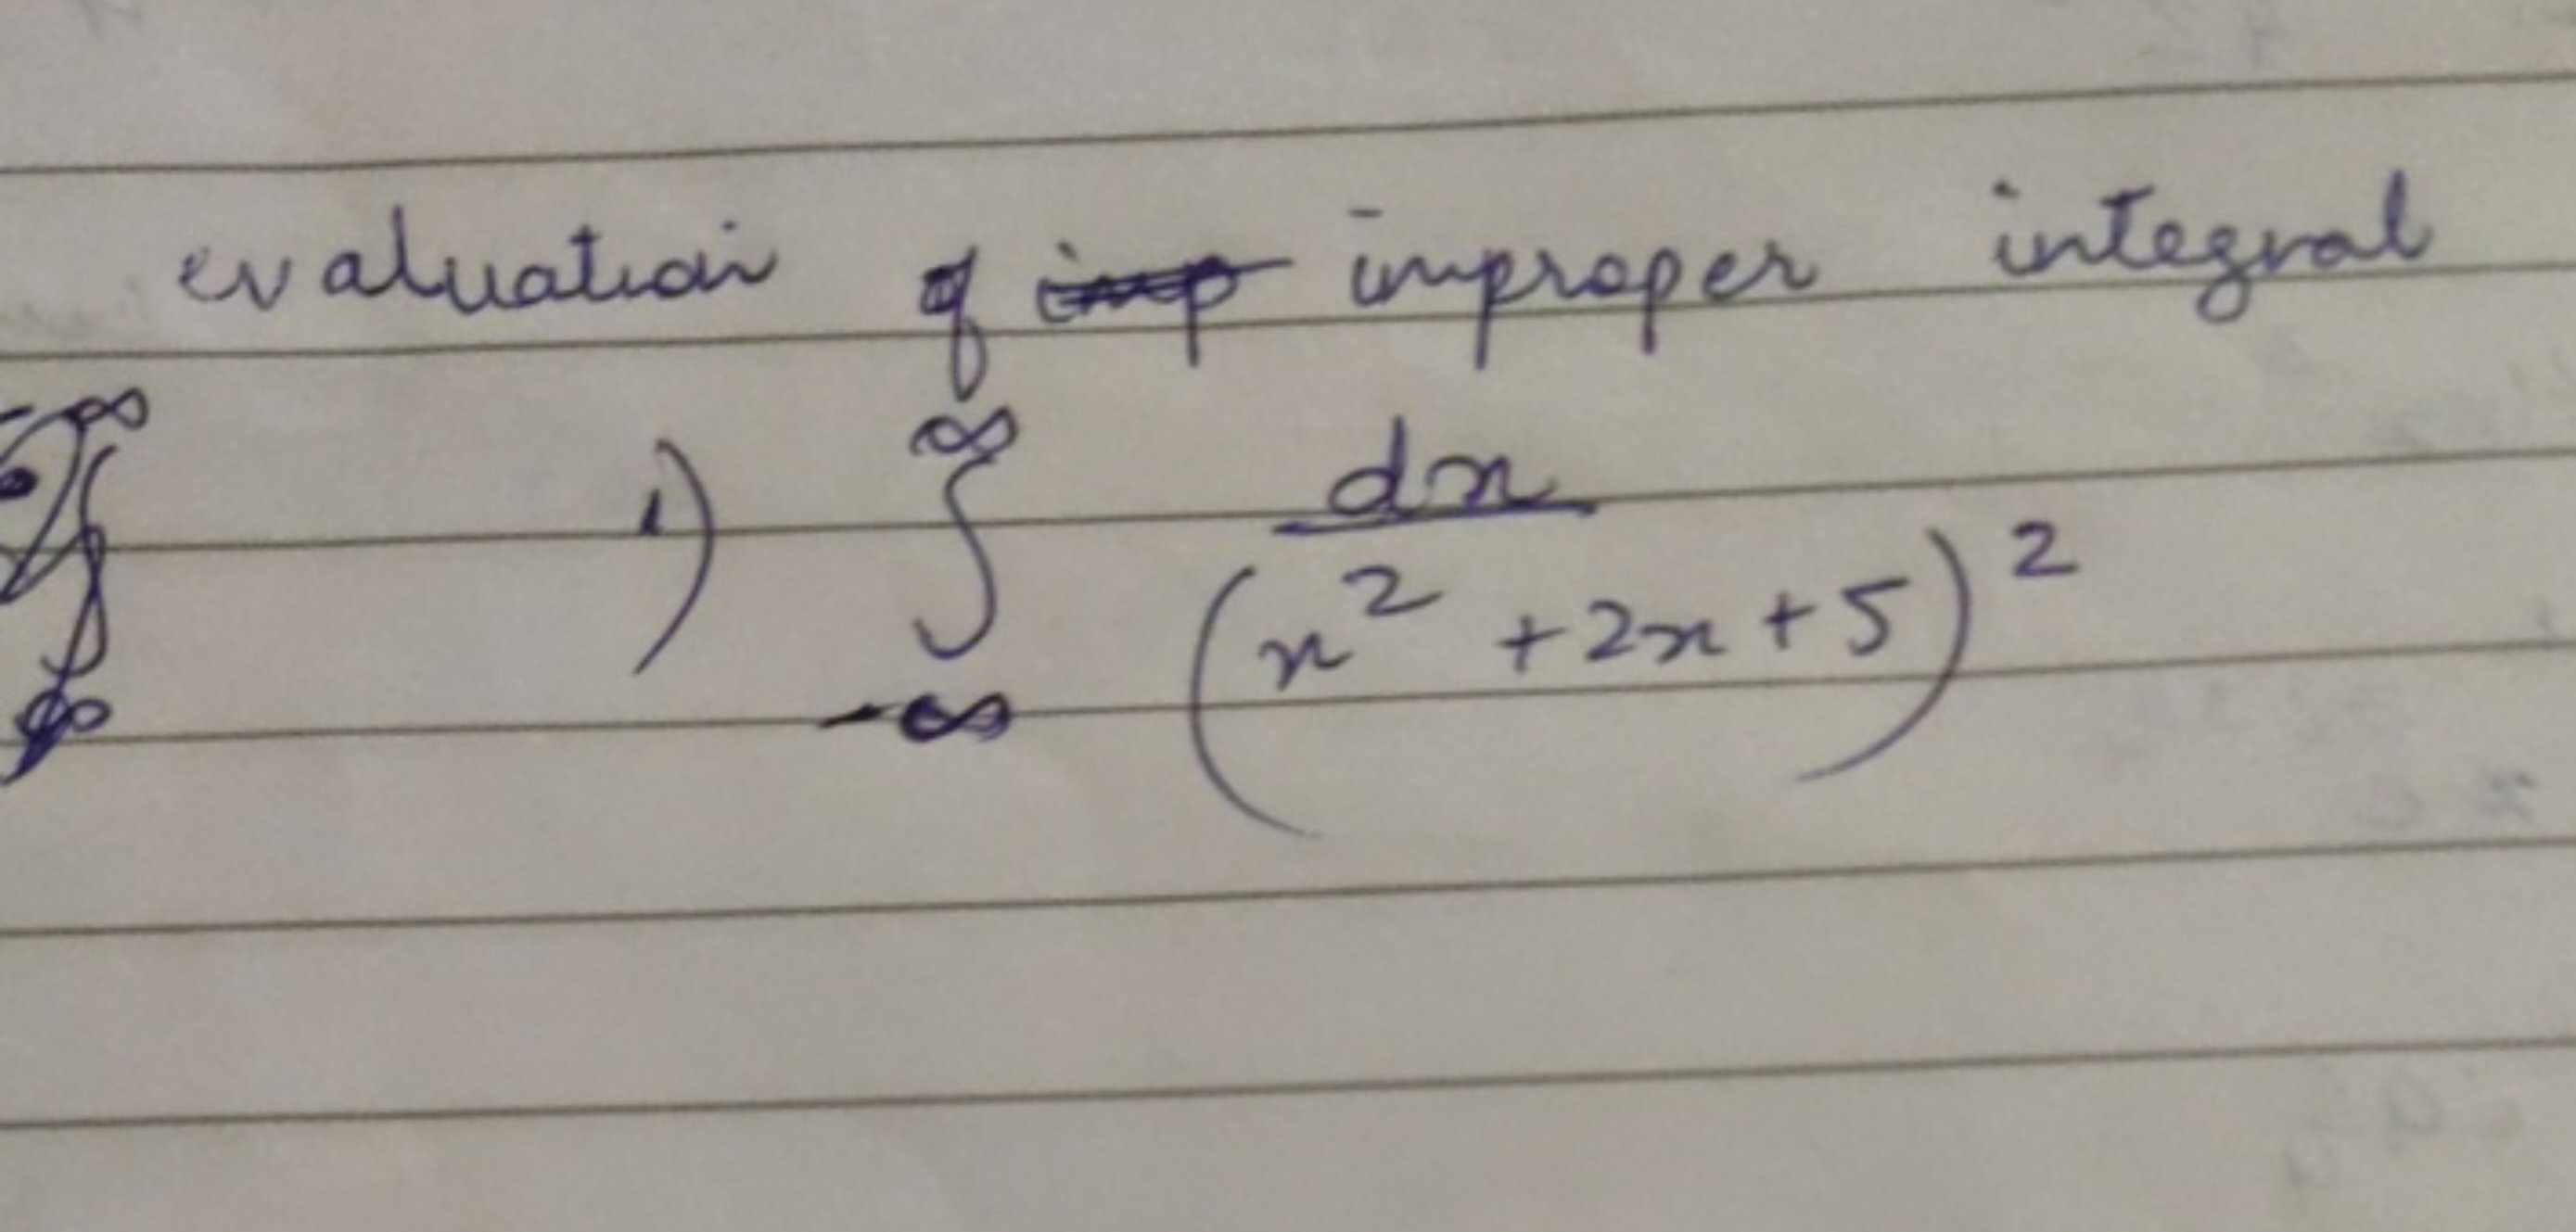 evaluation of improper integral
1) ∫_{-∞}^{∞} dx / (x² + 2x + 5)²